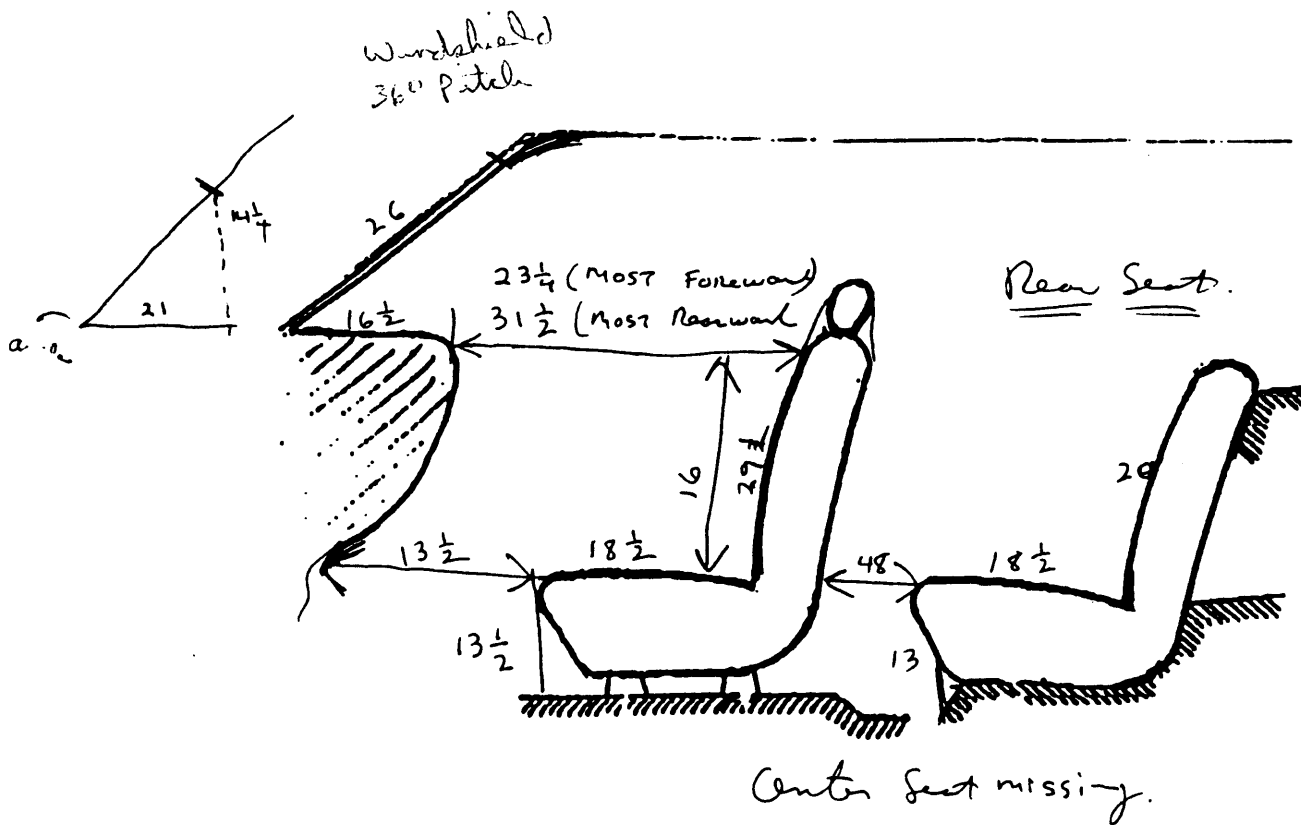 Windshield
36° Pitch
14 1/4
21
26
16 1/2
23 1/4 (MOST FOREWARD)
31 1/2 (MOST REARWARD
Rear Seat.
16
29 1/2
13 1/2
18 1/2
48
18 1/2
13 1/2
13
Center Seat missing.